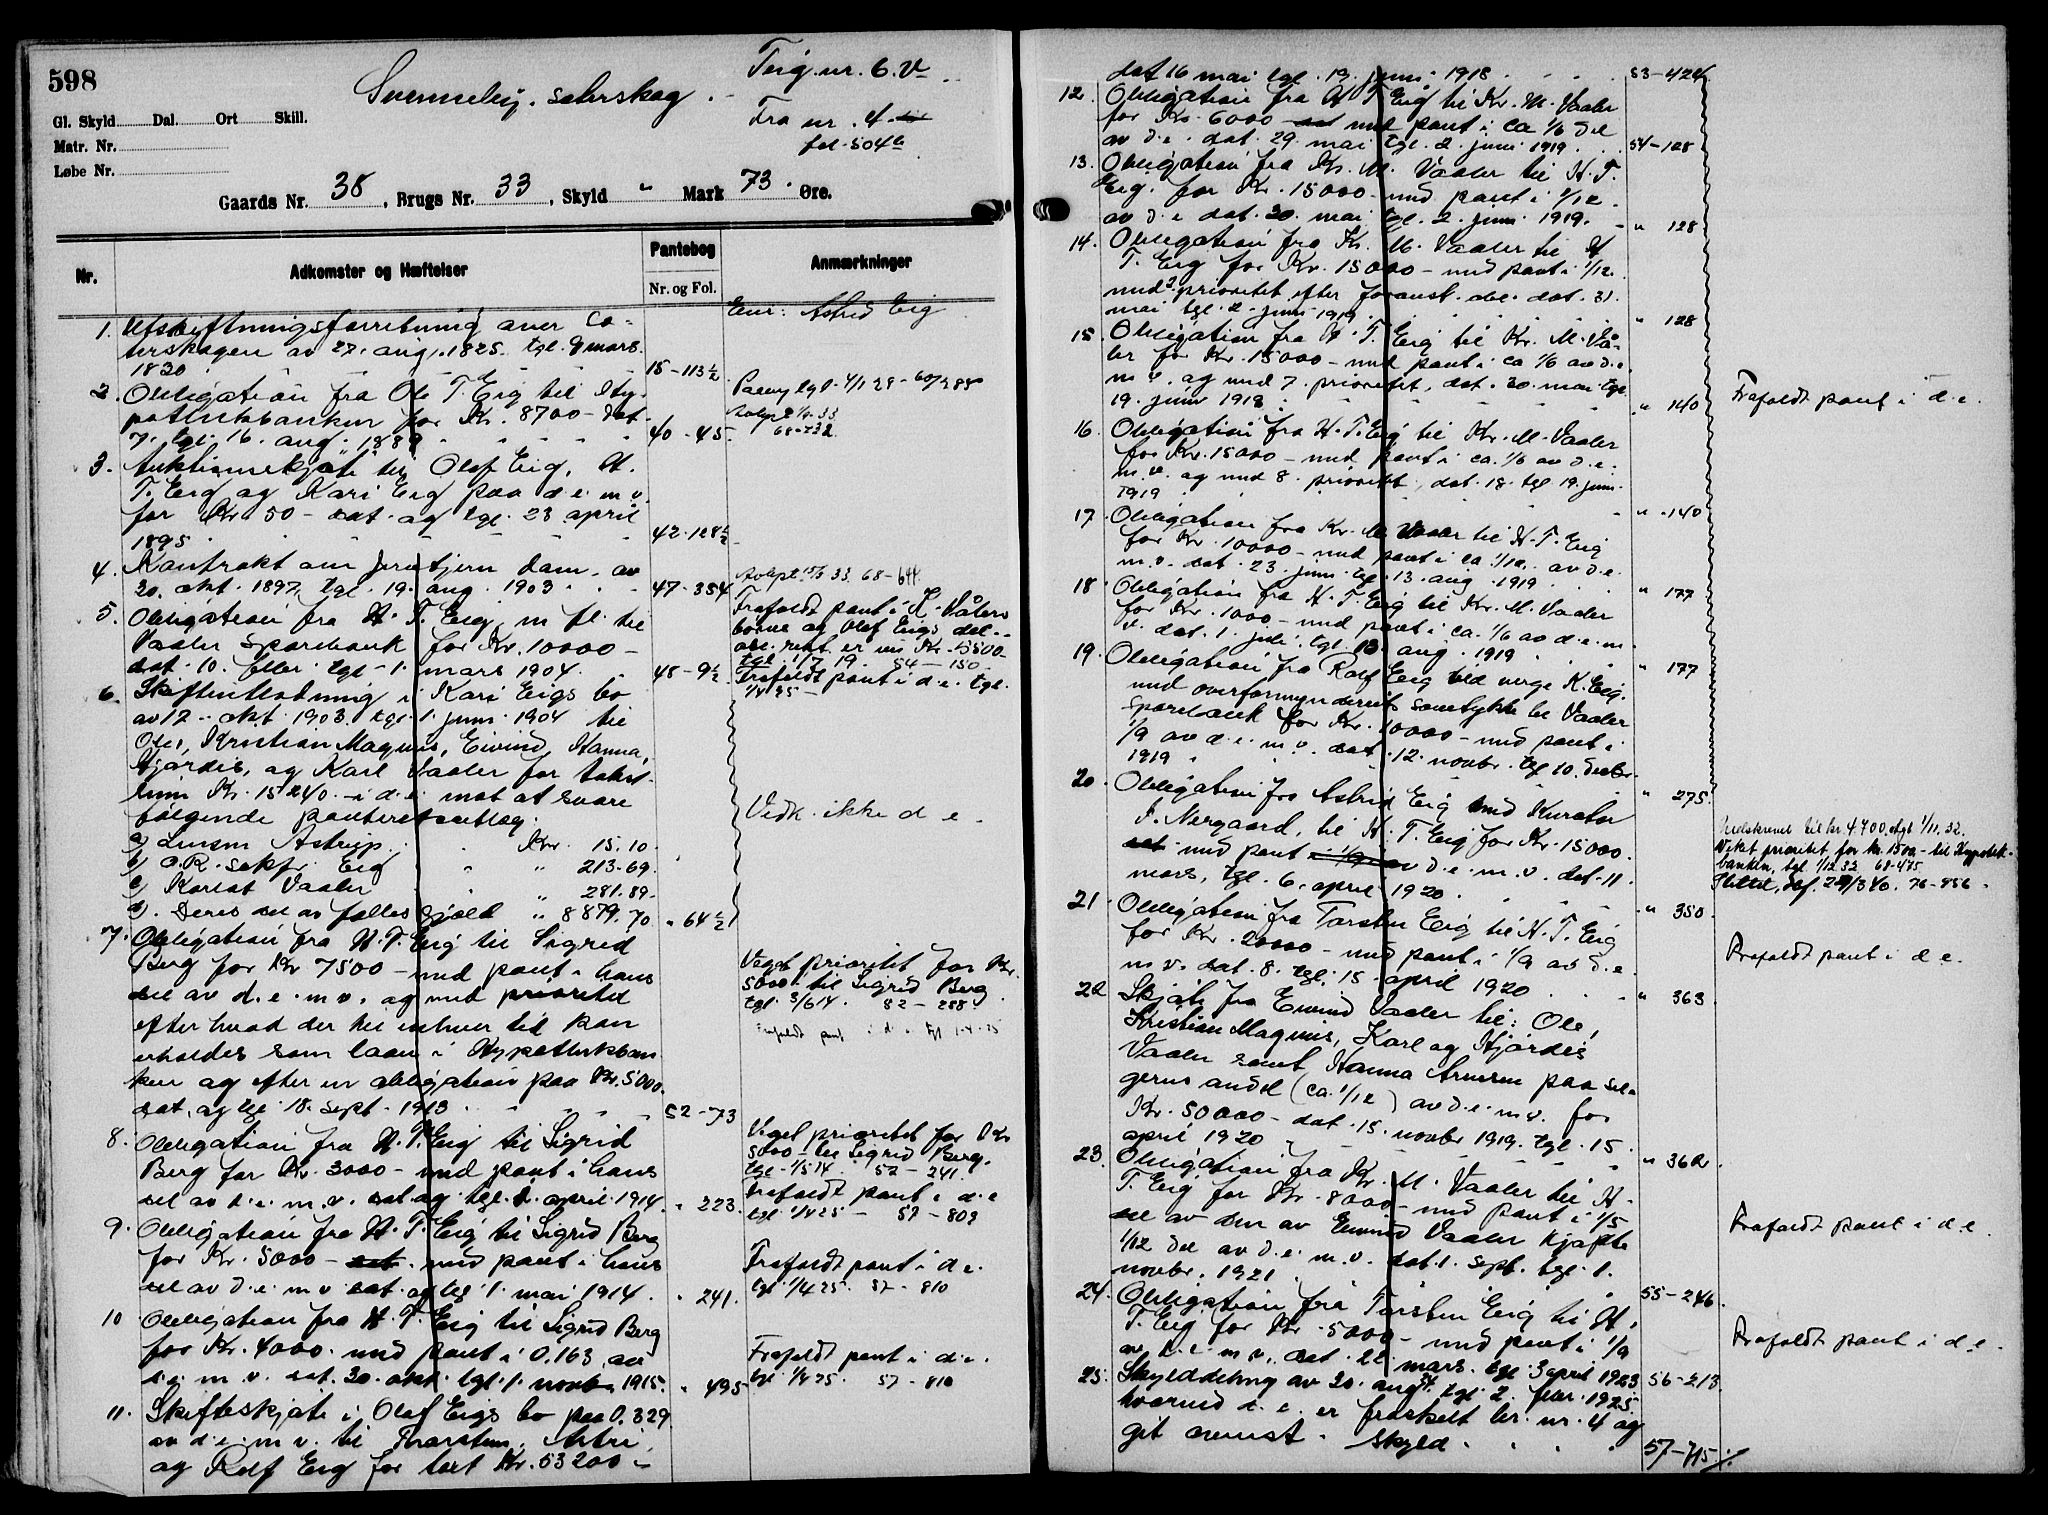 598
Teig. nr. 6. V
Svenneby. sæterskog.
Fra nr. 4
fol. 504b
Gl. Skyld Dal. Ort Skill.
Matr. Nr.
Løbe Nr.
Gaards Nr. 38, Brugs Nr. 33, Skyld " Mark 73. Øre.
Nr. Adkomster og Hæftelser Pantebog Nr. og Fol. Anmærkninger
Eier: Astrid Eig
1. Utskiftningsforretning over Sæ-
terskogen av 27. aug. 1825. tgl. 9 mars.
1830 15-113½
2. Obligation fra Ole T. Eig til Hy-
potekbanken for Kr. 8700 - dat
7. tgl. 16. aug. 1889 40-45.
68-732
3. Auktionsskjøte til Olaf Eig, H.
T. Eig og Kari Eig paa d.e. m.v.
for Kr. 50 - dat. og tgl. 23 april
1895 42-128½
4. Kontrakt om tjern dam. av
30. okt. 1897, tgl. 19. aug. 1903 47-354
Avlyst 15/5 33. 68-644
5. Obligation fra H. T. Eig m fl. til
Vaaler Sparebank for Kr. 10000 -
dat. 10. febr. tgl. 1. mars 1904. 48-9½
Frafaldt pant i K. Vålers
borne og Olaf Eigs del. -
tgl. 1/7 19. 54-150
Frafaldt pant i d.e. tgl.
1/4 25 -
6. Skifteutlodning i Kari Eigs bo
av 12. okt. 1903. tgl. 1. juni. 1904 til
Ole, Kristian Magnus, Eivind, Hanna,
Hjørdis, og Karl Vaaler for
Kr. 15240. - i d.e. mot at svare
følgende panteretsutlæg:
a) Lensm Astrup Kr. 15.10
b) O.R. sakf. Eig " 213.69.
c) Vaaler " 281.89.
d. Deres del av fælles gjæld " 8879.70 " 64½
Vedk. ikke d e.
7. Obligation fra H. T. Eig til Sigrid
Berg for Kr 7500 - med pant i hans
del av d.e. m.v. og med prioritet
efter hvad der til enhver tid kan
erholdes som laan i Hypothekban
ken og efter en obligation paa Kr. 5000.
dat. og tgl. 18. sept. 1913 52-73
Veget prioritet for Kr.
5000 - til Sigrid Berg
tgl. 3/6 14. 52-258.
Frafaldt pant i d.e. tgl 1-4-25
8. Obligation fra H. T. Eig til Sigrid
Berg for Kr. 3000 - med pant i hans
del av d.e. m.v. dat. og tgl. 1. april 1914. " 223.
Veget prioritet for Kr
5000 - til Sigrid Berg.
tgl. 1/5 14. 52-241.
Frafaldt pant i d.e
tgl. 1/4 25 - 57-809
9. Obligation fra H. T. Eig til Sigrid Berg
for Kr. 5000 - med pant i hans
del av d.e. m.v. dat. og tgl. 1. mai 1914. " 241.
Frafaldt pant i d.e.
tgl. 1/4 25. 57-810
10 Obligation fra H. T. Eig til Sigrid Berg
for Kr. 4000. med pant i 0.163 av
d.e. m.v. dat. 30. okt. tgl. 1. novbr. 1915. " 495
Frafaldt pant i d.e.
tgl. 1/4 25. 57-810
11. Skifteskjøte i Olaf Eigs bo paa 0.329
av d.e. m.v. til Thorsten, Astri,
og Rolf Eig for tilst. Kr. 53200 -
dat 16 mai tgl. 19. juni. 1918 53-424
12. Obligation fra H T Eig til Kr. M. Vaaler
for Kr. 6000 med pant i ca 1/6 del
av d.e. dat. 29. mai tgl. 2. juni 1919. 54-128
13. Obligation fra Kr. M. Vaaler til H. T.
Eig. for Kr. 15000 - med pant i 1/12.
av d.e dat. 30. mai tgl. 2. juni 1919. " 128
14. Obligation fra Kr. M. Vaaler til H
T. Eig for Kr. 15000 - med pant i 1/12.
med 2 prioritet efter foranst. obl. dat. 31.
mai tgl. 2. juni 1919 " 128
15. Obligation fra H. T. Eig til Kr. M. Vå-
ler for Kr. 15000 - med pant i ca 1/6 av d.e
m.v. og med 7. prioritet, dat. 30. mai tgl.
19. juni 1919 " 140
Frafaldt pant i d.e.
16. Obligation fra H. T. Eig til Kr. M. Vaaler
for Kr. 15000 - med pant i ca. 1/6 av d.e.
m.v. og med 8. prioritet, dat. 18. tgl 19. juni.
1919 " 140
17. Obligation fra Kr. M Vaaler til H. T. Eig
for Kr. 10000 - med pant i ca 1/12. av d.e.
m.v. dat. 23. juni. tgl. 13. aug. 1919 " 177
18 Obligation fra H. T. Eig til Kr. M. Vaaler
for Kr. 1000 - med pant i ca. 1/6 av d.e. m.
v. dat. 1. juli. tgl. 13. aug. 1919 " 177
19. Obligation fra Rolf Eig ved verge K. Eig.
med overformynderiets samtykke til Vaaler
Sparebank for Kr. 10000 - med pant i
1/9 av d.e. m.v. dat. 12. novbr. tgl 10. decbr.
1919 " 275.
20. Obligation fra Astrid Eig med Kurator
J. Nergaard, til H. T. Eig for Kr. 15000.
med pant i 1/9 av d.e. m.v. dat. 11.
mars, tgl. 6. april 1920 " 350.
Nedskrevet til kr. 4700, tgl 1/11. 32.
Vekt prioritet for kr. 1500 - til Hypotek-
banken, tgl. 1/12 32 68-475.
Slettet, 76-856.
21. Obligation fra Torsten Eig til H. T. Eig
for Kr. 20000 - med pant i 1/9 av d.e.
m.v. dat. 8. tgl. 15 april 1920 " 363
Frafaldt pant i d.e.
22 Skjøte fra Eivind Vaaler til: Ole,
Kristian Magnus, Karl og Hjørdis
Vaaler samt Hanna Arnesen paa sel-
gerens andel (ca. 1/12) av d.e. m.v. for
Kr. 50000 - dat. 15. novbr 1919. tgl. 15.
april 1920 " 362.
23. Obligation fra Kr. M. Vaaler til H.
T. Eig for Kr. 8000 - med pant i 1/5
del av den av Eivind Vaaler kjøpte
1/12 del av d.e. m.v. dat 1. sept. tgl. 1.
novbr. 1921 55-246.
Frafaldt pant i d.e
24. Obligation fra Torsten Eig til H.
T. Eig for Kr. 5000 - med pant i 1/9
av d.e. m.v. dat. 22 mars. tgl. 3 april 1923 56-213
Frafaldt pant i d.e.
25. Skylddeling av 20. aug 24. tgl. 2. febr. 1925
hvorved d.e. er fraskilt br. nr. 4 og
git ovenst. skyld. 57-715 ⁒